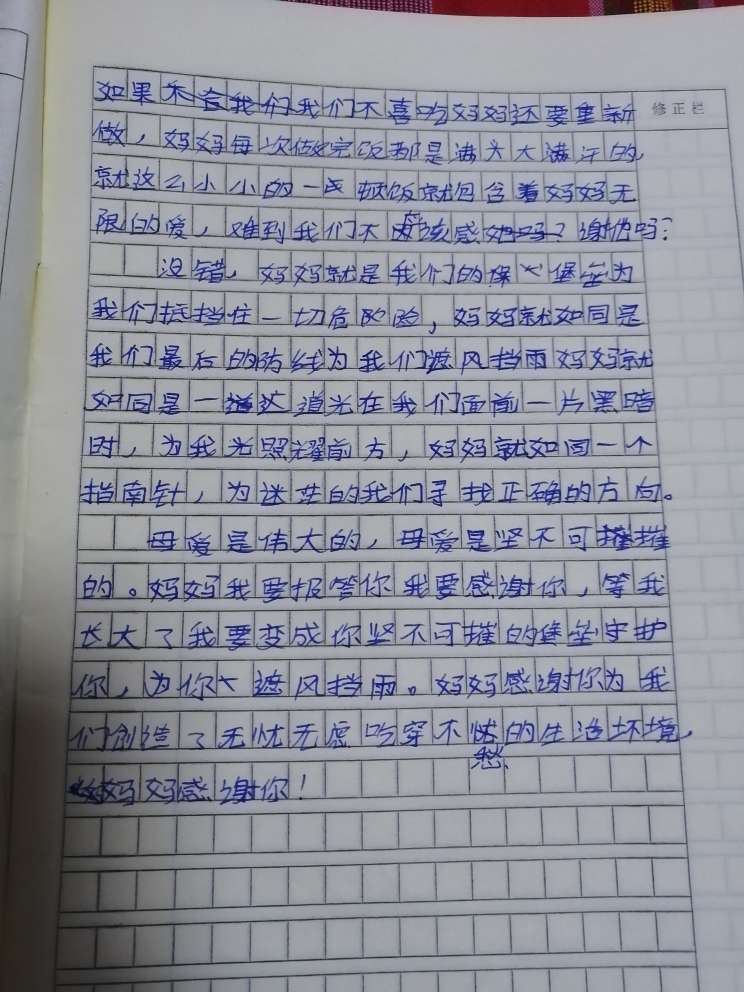 如果我们不喜吃妈妈还要重新
修正栏
做，妈妈每次做完饭都是满头大满汗的，
就这么小小的一顿饭就包含着妈妈无
限的爱，难到我们不应该感谢他吗？
没错，妈妈就是我们的保堡垒为
我们抵挡住一切危险，妈妈就如同是
我们最后的防线为我们遮风挡雨妈妈就
如同是一道光在我们面前一片黑暗
时，为我光照耀前方，妈妈就如同一个
指南针，为迷茫的我们寻找正确的方向。
母爱是伟大的，母爱是坚不可摧
的。妈妈我要报答你我要感谢你，等我
长大了我要变成你坚不可摧的堡垒守护
你，为你遮风挡雨。妈妈感谢你为我
们创造了无忧无虑吃穿不愁的生活环境，
妈妈感谢你！